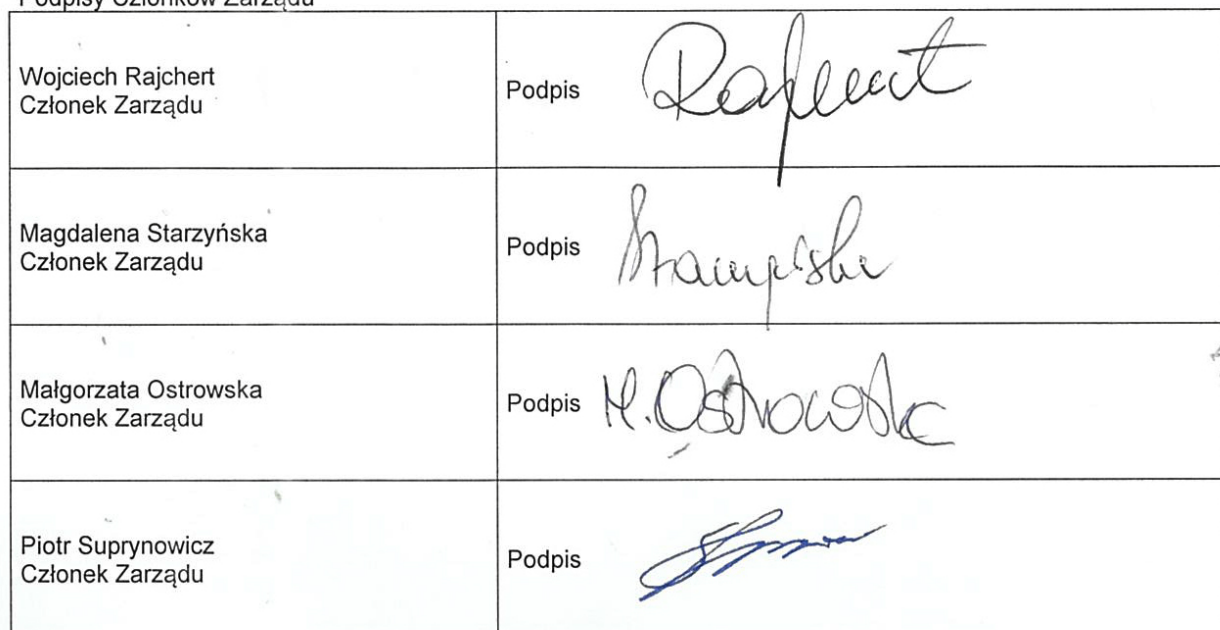 Podpisy Członków Zarządu
Wojciech Rajchert
Członek Zarządu
Podpis
Magdalena Starzyńska
Członek Zarządu
Podpis
Małgorzata Ostrowska
Członek Zarządu
Podpis M. Ostrowska
Piotr Suprynowicz
Członek Zarządu
Podpis